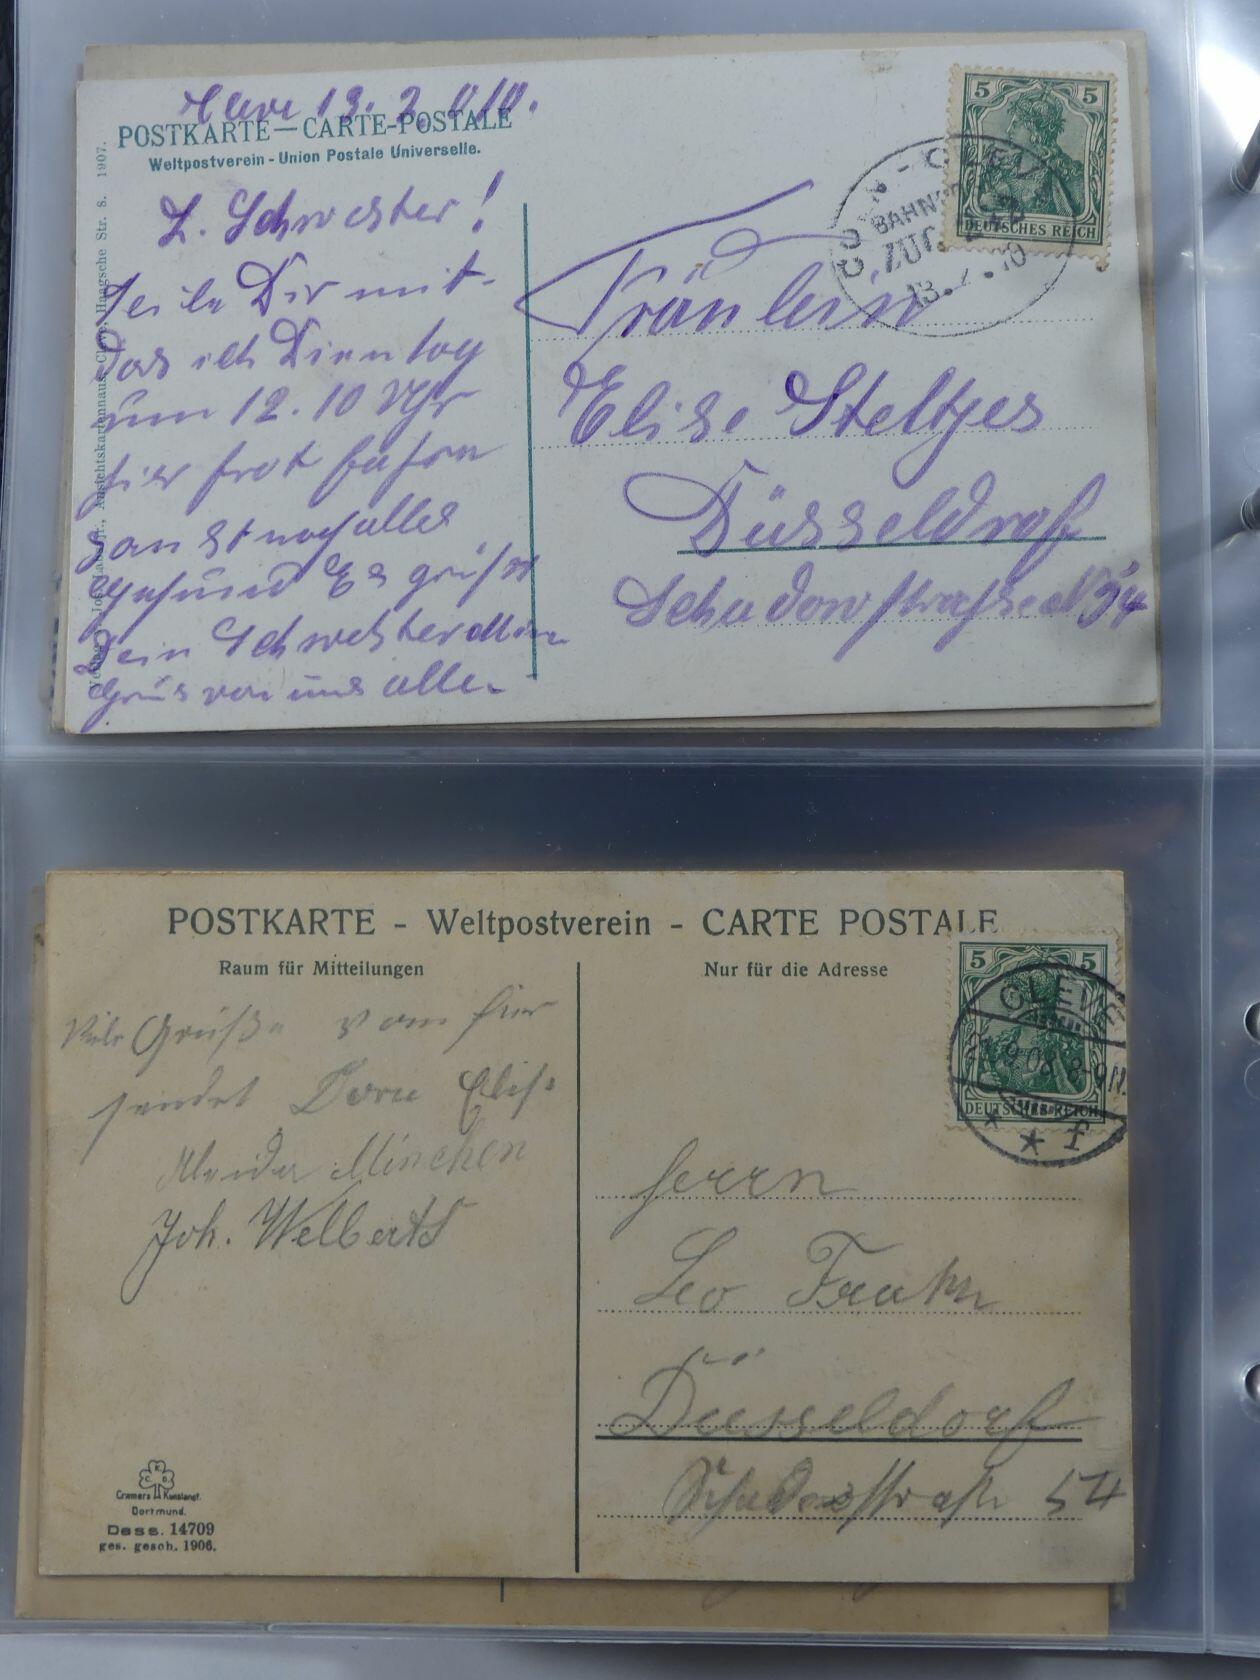 Cleve 13. 2. 010.
POSTKARTE — CARTE-POSTALE
Weltpostverein - Union Postale Universelle.
L. Schwester!
teile Dir mit
das ich Dienstag
um 12.10 Uhr
hier fort fahren
sonst noch alles
gesund Es grüßt
Dein Schwester
Grüs von uns allen
Haagsche Str. 8. 1907.
5 5
DEUTSCHES REICH
COELN - CLEV
BAHN
ZUG
13.2.10
Fräulein
Elise Steltjes
Düsseldrof
Schadowstrasse No 54
POSTKARTE - Weltpostverein - CARTE POSTALE
Raum für Mitteilungen
Nur für die Adresse
Viele Grüße vom hier
sendet Dora Elise
Minchen
Joh. Welberts
5 5
DEUTSCHES REICH
CLEVE
9.08.8-9N.
* * f
Herrn
Leo
Düsseldorf
Schadowstraße 54
C. K. D.
Cramers Kunstanst.
Dortmund.
Dess. 14709
ges. gesch. 1906.